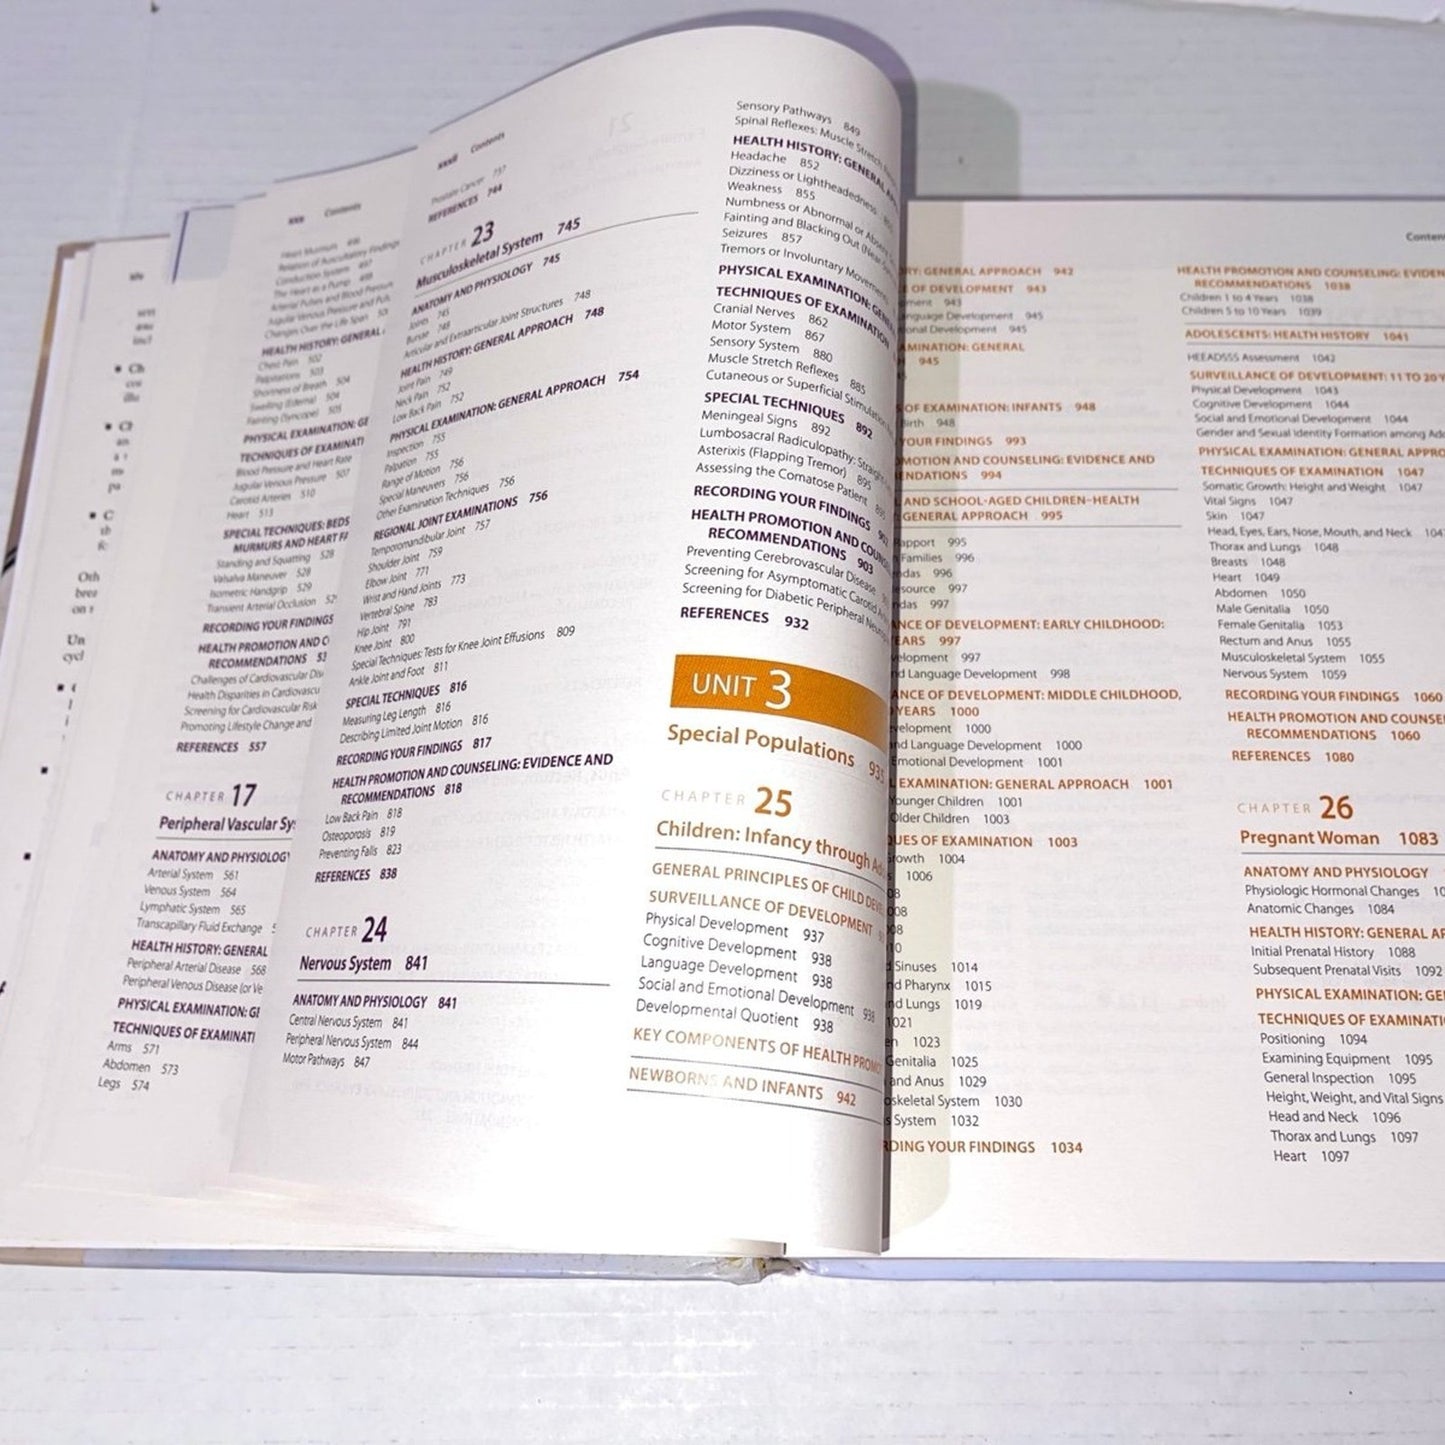 xxx Contents
Heart Murmurs 496
Relation of Auscultatory Findings
Conduction System 497
The Heart as a Pump 498
Arterial Pulses and Blood Pressure
Jugular Venous Pressure and Pulsations
Changes Over the Life Span
HEALTH HISTORY: GENERAL
Chest Pain 502
Palpitations 503
Shortness of Breath 504
Swelling (Edema) 504
Fainting (Syncope) 505
PHYSICAL EXAMINATION: GE
TECHNIQUES OF EXAMINATI
Blood Pressure and Heart Rate
Jugular Venous Pressure 507
Carotid Arteries 510
Heart 513
SPECIAL TECHNIQUES: BEDS
MURMURS AND HEART FA
Standing and Squatting 528
Valsalva Maneuver 528
Isometric Handgrip 529
Transient Arterial Occlusion 52
RECORDING YOUR FINDINGS
HEALTH PROMOTION AND C
RECOMMENDATIONS 53
Challenges of Cardiovascular Dis
Health Disparities in Cardiovascu
Screening for Cardiovascular Risk
Promoting Lifestyle Change and
REFERENCES 557
CHAPTER 17
Peripheral Vascular Sy
ANATOMY AND PHYSIOLOGY
Arterial System 561
Venous System 564
Lymphatic System 565
Transcapillary Fluid Exchange
HEALTH HISTORY: GENERAL
Peripheral Arterial Disease 568
Peripheral Venous Disease (or Ve
PHYSICAL EXAMINATION: GE
TECHNIQUES OF EXAMINATI
Arms 571
Abdomen 573
Legs 574
xxxii Contents
Prostate Cancer 737
REFERENCES 744
CHAPTER 23
Musculoskeletal System 745
ANATOMY AND PHYSIOLOGY 745
Joints 745
Bursae 748
Articular and Extraarticular Joint Structures 748
HEALTH HISTORY: GENERAL APPROACH 748
Joint Pain 749
Neck Pain 752
Low Back Pain 752
PHYSICAL EXAMINATION: GENERAL APPROACH 754
Inspection 755
Palpation 755
Range of Motion 756
Special Maneuvers 756
Other Examination Techniques 756
REGIONAL JOINT EXAMINATIONS 756
Temporomandibular Joint 757
Shoulder Joint 759
Elbow Joint 771
Wrist and Hand Joints 773
Vertebral Spine 783
Hip Joint 791
Knee Joint 800
Special Techniques: Tests for Knee Joint Effusions 809
Ankle Joint and Foot 811
SPECIAL TECHNIQUES 816
Measuring Leg Length 816
Describing Limited Joint Motion 816
RECORDING YOUR FINDINGS 817
HEALTH PROMOTION AND COUNSELING: EVIDENCE AND
RECOMMENDATIONS 818
Low Back Pain 818
Osteoporosis 819
Preventing Falls 823
REFERENCES 838
CHAPTER 24
Nervous System 841
ANATOMY AND PHYSIOLOGY 841
Central Nervous System 841
Peripheral Nervous System 844
Motor Pathways 847
Sensory Pathways 849
Spinal Reflexes: Muscle Stretch
HEALTH HISTORY: GENERAL
Headache 852
Dizziness or Lightheadedness
Weakness 855
Numbness or Abnormal or Absent
Fainting and Blacking Out (Near
Seizures 857
Tremors or Involuntary Movements
PHYSICAL EXAMINATION: GENERAL
TECHNIQUES OF EXAMINATION
Cranial Nerves 862
Motor System 867
Sensory System 880
Muscle Stretch Reflexes 885
Cutaneous or Superficial Stimulation
SPECIAL TECHNIQUES 892
Meningeal Signs 892
Lumbosacral Radiculopathy: Straight
Asterixis (Flapping Tremor) 895
Assessing the Comatose Patient 895
RECORDING YOUR FINDINGS 902
HEALTH PROMOTION AND COUNSE
RECOMMENDATIONS 903
Preventing Cerebrovascular Disease
Screening for Asymptomatic Carotid
Screening for Diabetic Peripheral Neurop
REFERENCES 932
UNIT 3
Special Populations 935
CHAPTER 25
Children: Infancy through Ad
GENERAL PRINCIPLES OF CHILD DEVE
SURVEILLANCE OF DEVELOPMENT
Physical Development 937
Cognitive Development 938
Language Development 938
Social and Emotional Development 938
Developmental Quotient 938
KEY COMPONENTS OF HEALTH PROMO
NEWBORNS AND INFANTS 942
ORY: GENERAL APPROACH 942
E OF DEVELOPMENT 943
pment 943
anguage Development 945
ional Development 945
AMINATION: GENERAL
H 945
S OF EXAMINATION: INFANTS 948
Birth 948
YOUR FINDINGS 993
MOTION AND COUNSELING: EVIDENCE AND
ENDATIONS 994
AND SCHOOL-AGED CHILDREN–HEALTH
GENERAL APPROACH 995
apport 995
Families 996
ndas 996
esource 997
ndas 997
NCE OF DEVELOPMENT: EARLY CHILDHOOD:
EARS 997
velopment 997
nd Language Development 998
ANCE OF DEVELOPMENT: MIDDLE CHILDHOOD,
YEARS 1000
velopment 1000
nd Language Development 1000
Emotional Development 1001
EXAMINATION: GENERAL APPROACH 1001
Younger Children 1001
Older Children 1003
QUES OF EXAMINATION 1003
rowth 1004
s 1006
08
008
08
10
d Sinuses 1014
nd Pharynx 1015
nd Lungs 1019
1021
en 1023
Genitalia 1025
and Anus 1029
oskeletal System 1030
s System 1032
RDING YOUR FINDINGS 1034
Conten
HEALTH PROMOTION AND COUNSELING: EVIDEN
RECOMMENDATIONS 1038
Children 1 to 4 Years 1038
Children 5 to 10 Years 1039
ADOLESCENTS: HEALTH HISTORY 1041
HEEADSSS Assessment 1042
SURVEILLANCE OF DEVELOPMENT: 11 TO 20 Y
Physical Development 1043
Cognitive Development 1044
Social and Emotional Development 1044
Gender and Sexual Identity Formation among Ado
PHYSICAL EXAMINATION: GENERAL APPRO
TECHNIQUES OF EXAMINATION 1047
Somatic Growth: Height and Weight 1047
Vital Signs 1047
Skin 1047
Head, Eyes, Ears, Nose, Mouth, and Neck 104
Thorax and Lungs 1048
Breasts 1048
Heart 1049
Abdomen 1050
Male Genitalia 1050
Female Genitalia 1053
Rectum and Anus 1055
Musculoskeletal System 1055
Nervous System 1059
RECORDING YOUR FINDINGS 1060
HEALTH PROMOTION AND COUNSE
RECOMMENDATIONS 1060
REFERENCES 1080
CHAPTER 26
Pregnant Woman 1083
ANATOMY AND PHYSIOLOGY
Physiologic Hormonal Changes 10
Anatomic Changes 1084
HEALTH HISTORY: GENERAL AP
Initial Prenatal History 1088
Subsequent Prenatal Visits 1092
PHYSICAL EXAMINATION: GE
TECHNIQUES OF EXAMINATI
Positioning 1094
Examining Equipment 1095
General Inspection 1095
Height, Weight, and Vital Signs
Head and Neck 1096
Thorax and Lungs 1097
Heart 1097